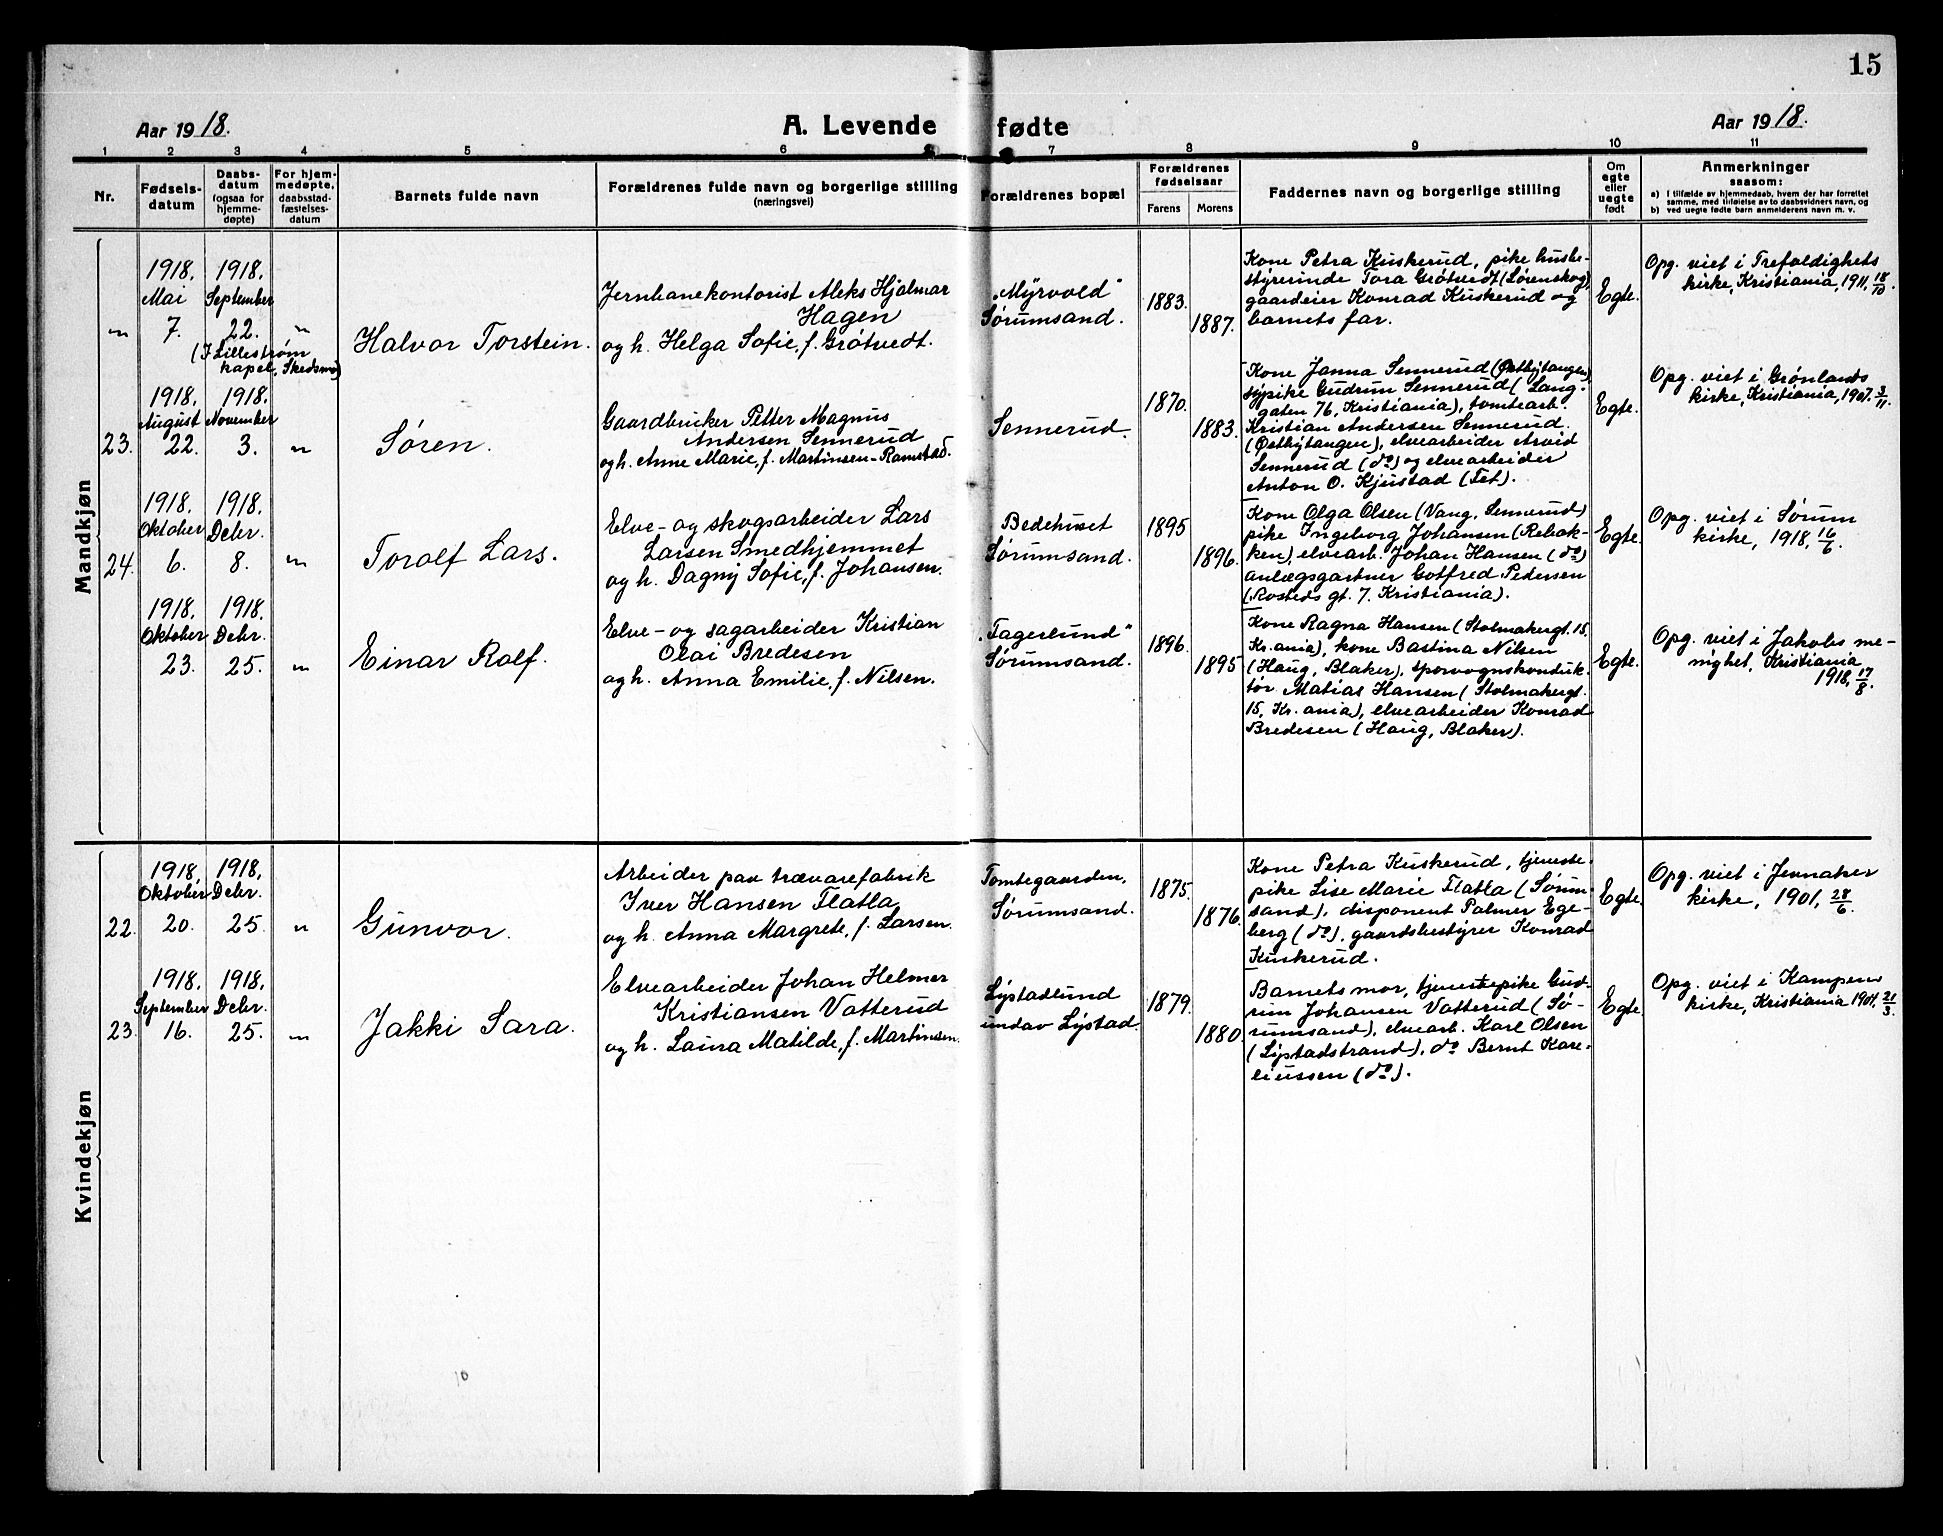 15
Aar 1918.
A. Levende fødte
Aar 1918.
1 2 3 4 5 6 7 8 9 10 11
Nr.
Fødsels-
datum
Daabs-
datum
(ogsaa for
hjemme-
døpte)
For hjem-
medøpte,
daabsstad-
fæstelses-
datum
Barnets fulde navn
Forældrenes fulde navn og borgerlige stilling
(næringsvei)
Forældrenes bopæl
Forældrenes
fødselsaar
Farens Morens
Faddernes navn og borgerlige stilling
Om
egte
eller
uegte
født
Anmerkninger
saasom:
a) I tilfælde av hjemmedaab, hvem der har forrettet
samme, med tilføielse av to daabsvidners navn, og
b) ved uegte fødte barn anmelderens navn m. v.
Mandkjøn
"
1918.
Mai
7.
1918.
September
22.
(I Lillestrøm
kapel, Skedsmo)
"
Halvor Torstein.
Jernbanekontorist Aleks Hjalmar
Hagen
og h. Helga Sofie, f. Grøtvedt.
"Myrvold"
Sørumsand.
1883.
1887.
Kone Petra Kuskerud, pike husbe-
styrerinde Tora Grøtvedt (Lørenskog),
gaardeier Konrad Kuskerud og
barnets far.
Egte.
Opg. viet i Trefoldighets
kirke, Kristiania, 1911, 18/10.
23.
1918.
August
22.
1918.
November
3.
"
Søren.
Gaardbruker Petter Magnus
Andersen Sennerud
og h. Anne Marie, f. Martinsen-Ramstad.
Sennerud.
1870.
1883.
Kone Janna Sennerud (Østbytangen),
sypike Gudrun Sennerud (Lang-
gaten 76, Kristiania), tomtearb.
Kristian Andersen Sennerud
(Østbytangen), elvearbeider Arvid
Sennerud (do) og elvearbeider
Anton O. Kjustad (Fet).
Egte.
Opg. viet i Grønlands
kirke, Kristiania, 1907. 3/11.
24.
1918.
Oktober
6.
1918.
Debr.
8.
"
Toralf Lars.
Elve- og skogsarbeider Lars
Larsen Smedhjemmet
og h. Dagny Sofie, f. Johansen.
Bedehuset
Sørumsand.
1895
1896.
Kone Olga Olsen (Vang, Sennerud)
pike Ingeborg Johansen (Rebak-
ken), elvearb. Johan Hansen (do)
anlægsgartner Gotfred Pedersen
(Rosteds gt. 7. Kristiania).
Egte.
Opg. viet i Sørum
kirke, 1918, 16/6.
1918.
Oktober
23.
1918.
Debr.
25.
"
Einar Rolf.
Elve- og sagarbeider Kristian
Olai Bredesen
og h. Anna Emilie, f. Nilsen.
"Fagerlund"
Sørumsand.
1896.
1895
Kone Ragna Hansen (Stolmakergt. 15,
Kr.ania), kone Bastina Nilsen
(Haug, Blaker), sporvognskonduk-
tør Matias Hansen (Stolmakergt.
15, Kr.ania), elvearbeider Konrad
Bredesen (Haug, Blaker).
Egte.
Opg. viet i Jakobs me-
nighet, Kristiania
1918, 17/8.
Kvindekjøn
22.
1918.
Oktober
20.
1918.
Debr.
25.
"
Gunvor.
Arbeider paa trævarefabrik
Iver Hansen Flatla
og h. Anna Margrete, f. Larsen.
Tomtegaarden,
Sørumsand.
1875.
1876.
Kone Petra Kuskerud, tjeneste-
pike Lise Marie Flatla (Sørum-
sand), disponent Palmer Ege-
berg (do), gaardsbestyrer Konrad
Kuskerud.
Egte.
Opg. viet i Jevnaker
kirke, 1901, 28/6.
23.
1918.
September
16.
1918.
Debr.
25.
"
Jakki Sara.
Elvearbeider Johan Helmer
Kristiansen Vatterud
og h. Laura Matilde, f. Martinsen.
Lystadlund
undav Lystad.
1879.
1880.
Barnets mor, tjenestepike Gud-
run Johansen Vatterud (Sø-
rumsand), elvearb. Karl Olsen
(Lystadstrand), do Bernt Kare-
liussen (do).
Egte.
Opg. viet i Kampens
kirke, Kristiania 1901, 21/3.